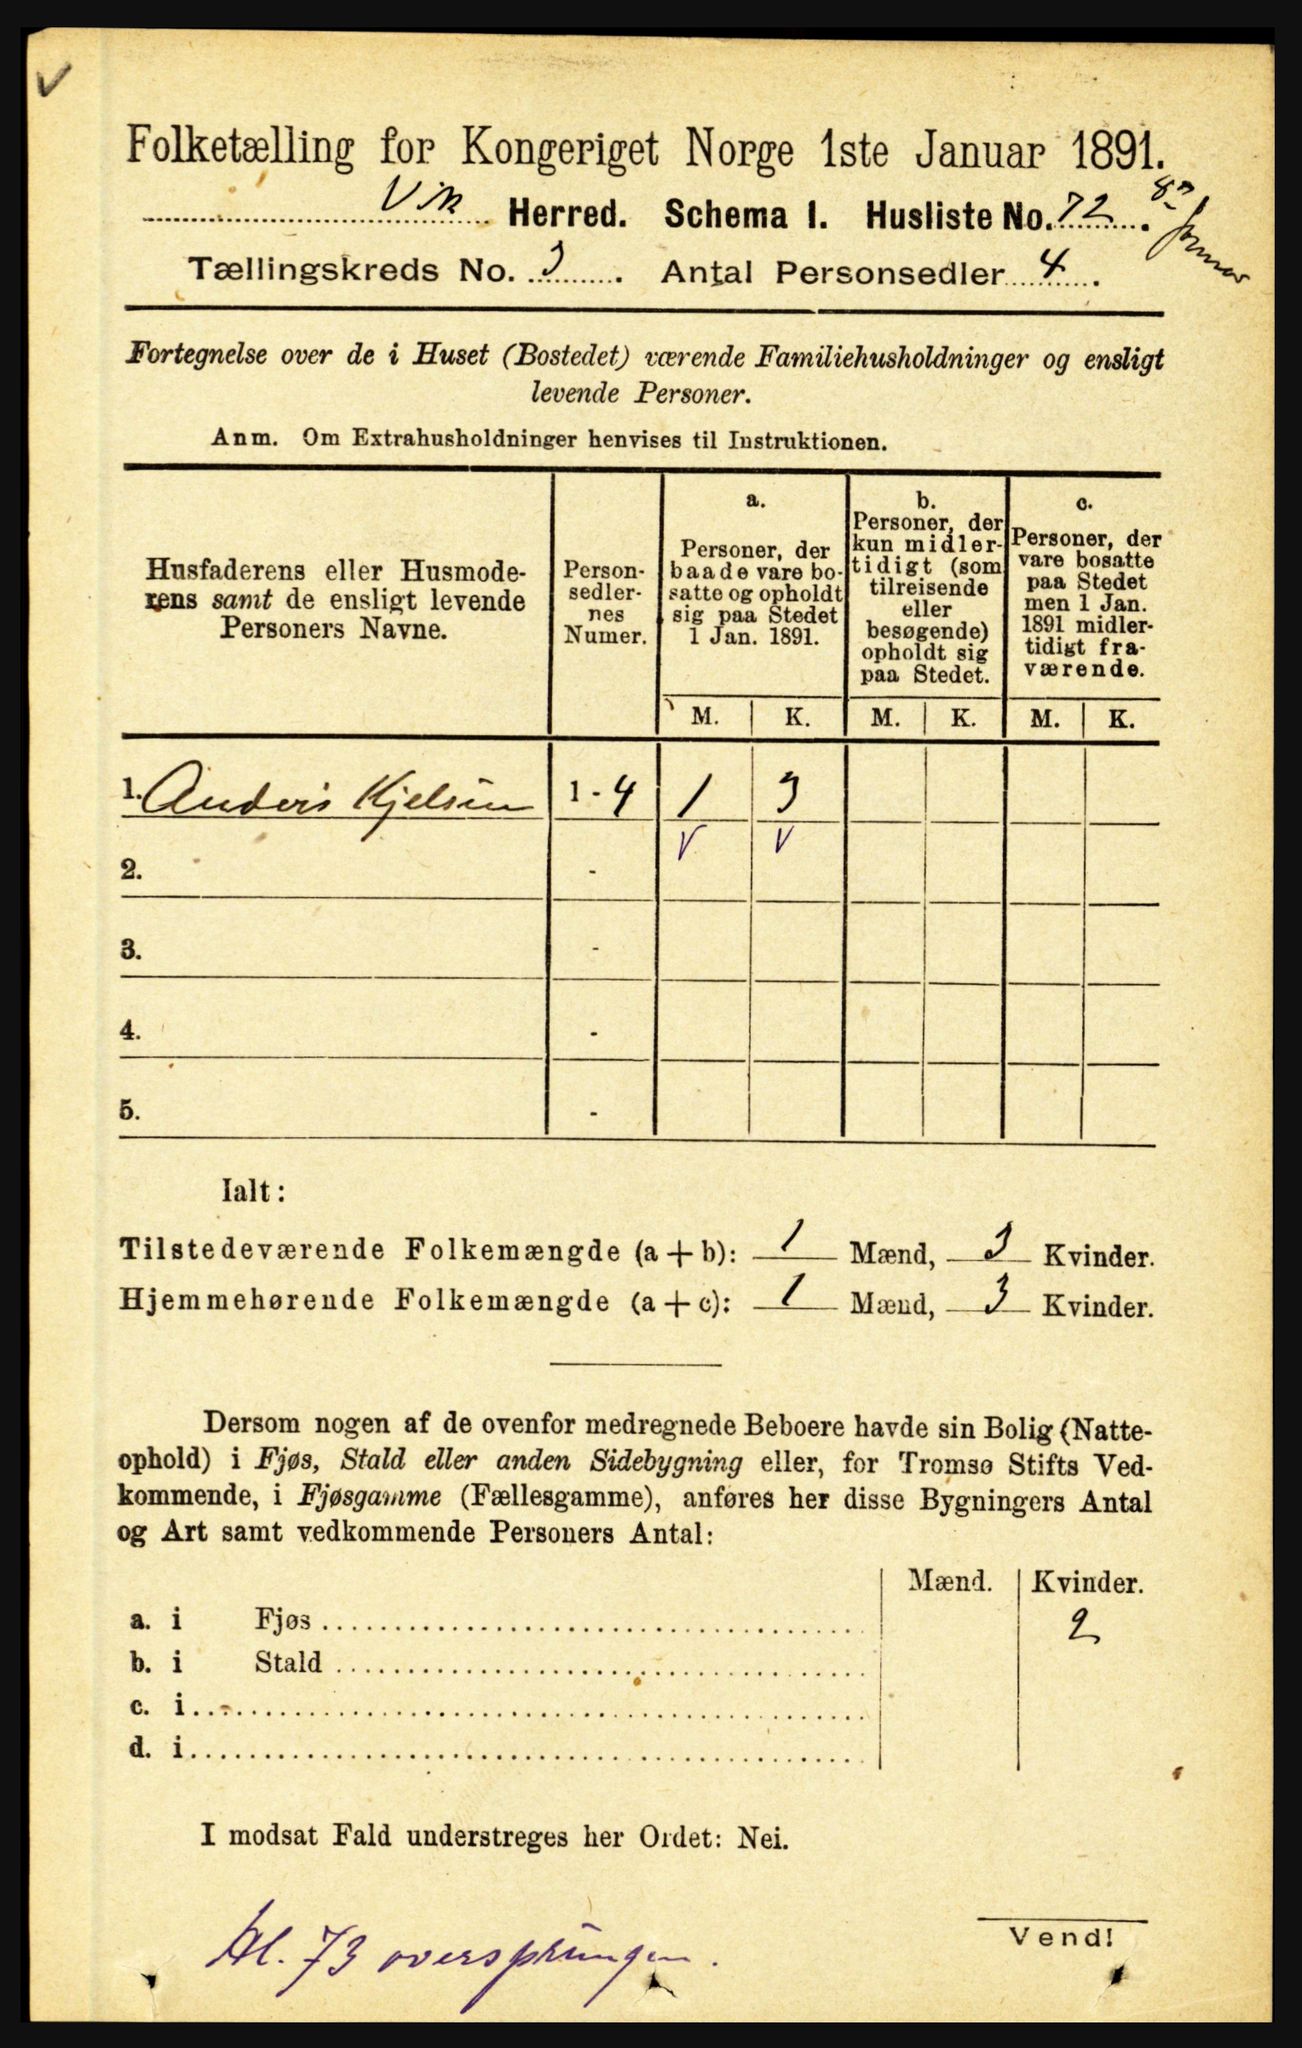 Folketælling for Kongeriget Norge 1ste Januar 1891.
Vik Herred. Schema I. Husliste No. 72.
Tællingskreds No. 3. Antal Personsedler 4.
Fortegnelse over de i Huset (Bostedet) værende Familiehusholdninger og ensligt
levende Personer.
Anm. Om Extrahusholdninger henvises til Instruktionen.
Husfaderens eller Husmode-
rens samt de ensligt levende
Personers Navne.
Person-
sedler-
nes
Numer.
a.
Personer, der
baade vare bo-
satte og opholdt
sig paa Stedet
1 Jan. 1891.
b.
Personer, der
kun midler-
tidigt (som
tilreisende
eller
besøgende)
opholdt sig
paa Stedet.
c.
Personer, der
vare bosatte
paa Stedet
men 1 Jan.
1891 midler-
tidigt fra-
værende.
M. K. M. K. M. K.
1. Anders Kjelsen 1 - 4 1 3
2. -
3. -
4. -
5. -
Ialt:
Tilstedeværende Folkemængde (a + b): 1 Mænd, 3 Kvinder.
Hjemmehørende Folkemængde (a + c): 1 Mænd, 3 Kvinder.
Dersom nogen af de ovenfor medregnede Beboere havde sin Bolig (Natte-
ophold) i Fjøs, Stald eller anden Sidebygning eller, for Tromsø Stifts Ved-
kommende, i Fjøsgamme (Fællesgamme), anføres her disse Bygningers Antal
og Art samt vedkommende Personers Antal:
Mænd. Kvinder.
a. i Fjøs 2
b. i Stald
c. i
d. i
I modsat Fald understreges her Ordet: Nei.
Hl. 73 oversprungen.
Vend!